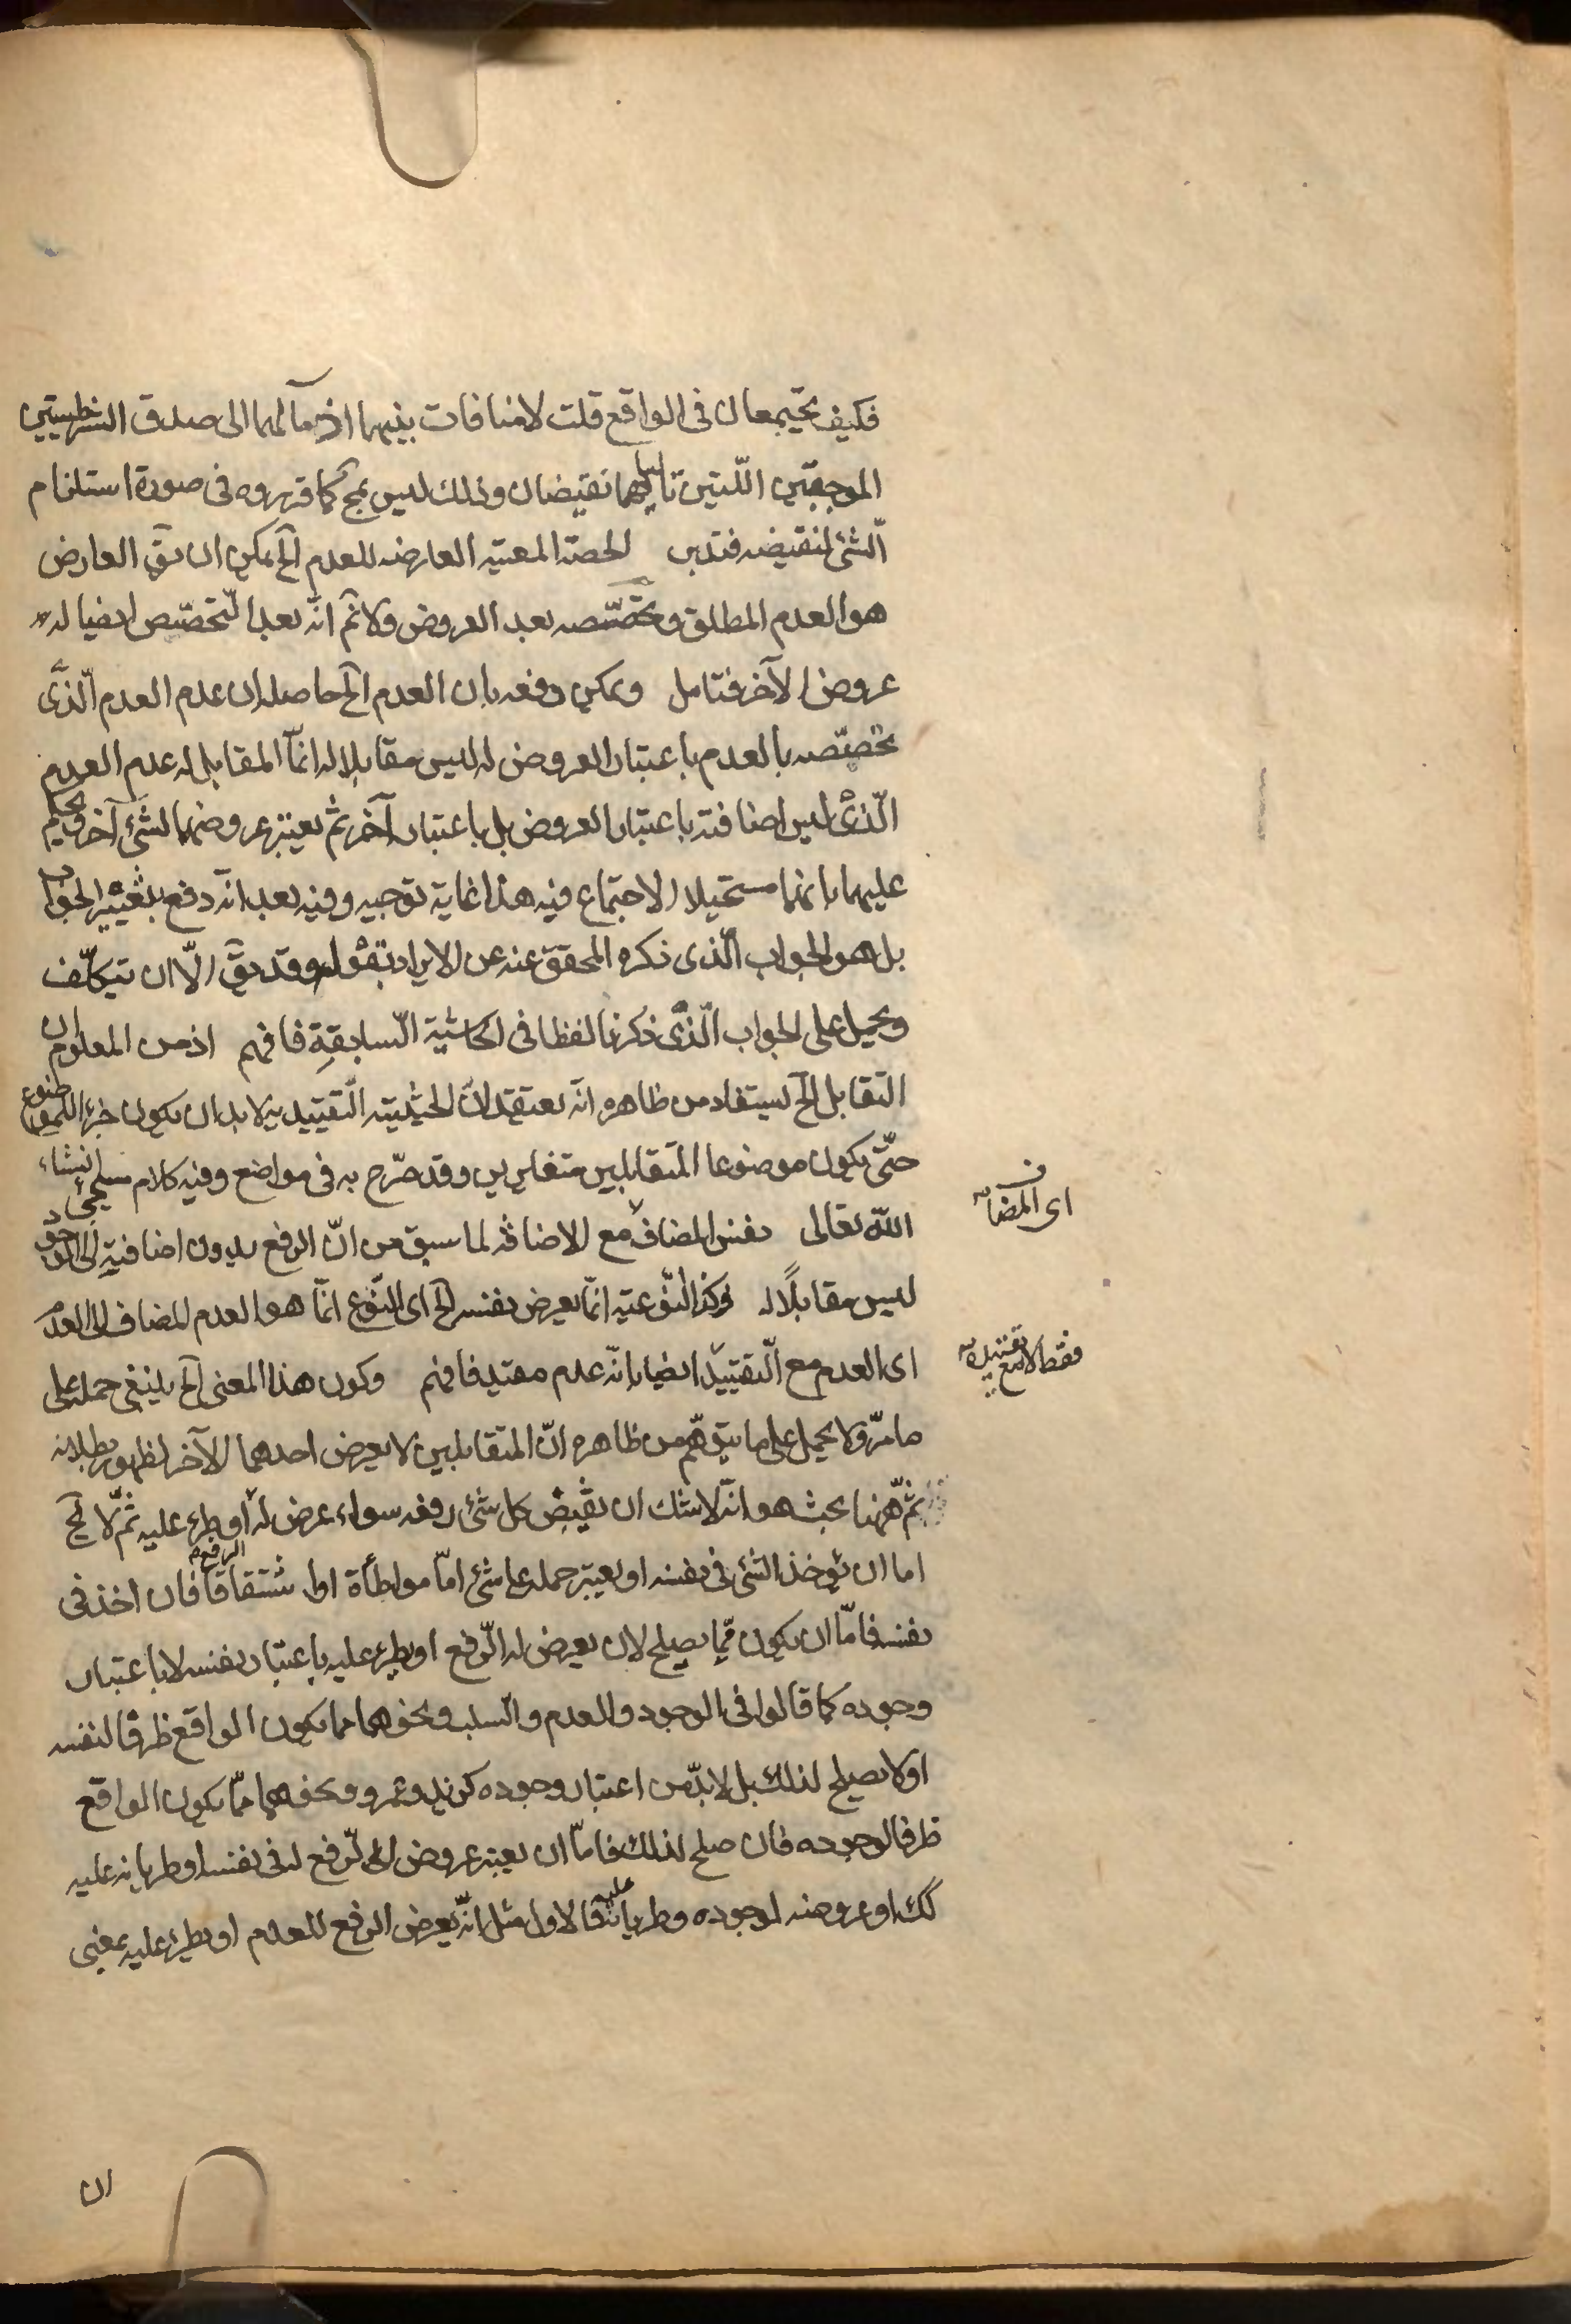 فكيف يجتمعان فى الواقع قلت لا منافات بينهما اذ مآلهما الى صدق الشرطيتين
الموجبتين اللّتين تالياهما نقيضان وذلك ليس بمح كما قرروه فى صورة استلزام
الّشئ لنقيضه فتدبر لحصته المعينة العارضه للعدم الخ يمكن ان يقَ العارض
هو العدم المطلق وتخصّصه بعد العروض ولا نم انّه بعد التخصّص ايضا له
عروض الآخر فتامل ويمكن دفعه بان العدم الخ حاصله ان عدم العدم الّذى
تخصّصه بالعدم باعتبار العروض له ليس مقابلا له انّما المقابل له عدم العدم
الّذى ليس اضافته باعتبار العروض بل باعتبار آخر ثم يعتبر عروضهما لشئ آخر ويحكم
عليهما بانهما مستحيلا الاجتماع فيه هذا غاية توجيه وفيه بعد انّه دفع بتغيير الجواب
بل هو الجواب الّذى ذكره المحقق عنه عن الايراد بقوله وقد يقَ الّا ان يتكلّف
ويحمل على الجواب الّذى ذكرنا لفظا فى الحاشية السّابقة فافهم اذ من المعلوم ان
التقابل الخ يستفاد من ظاهره انّه يعتقد انّ الحيثية التّقييدية لا بد ان يكون جزءا للموضوع
حتّى يكون موضوعا المتقابلين متغايرين وقد صرّح به فى مواضع وفيه كلام سيجئ انشاء
الله تعالى نفس المضاف لا مع الاضافه لما سبق من انّ الرفع بدون اضافته الى الوجود
ليس مقابلًا له وكذا النّوعيّة انّما يعرض نفسه الخ اى النّوع انّما هو العدم المضاف الى العدم
اى العدم مع التّقييد ايضا بانّه عدم مقيد فافهم وكون هذا المعنى الخ ينبغى حمله على
ما مرّ ولا يحمل على ما يتوهّم من ظاهره انّ المتقابلين لا يعرض احدهما الآخر لظهور بطلانه
ثمّ ههنا بحث هو انّه لا شك ان نقيض كل شئ رفعه سواء عرض له او طرء عليه ثمّ لا يخ
اما ان يؤخذ الشئ فى نفسه او يعتبر حمله على شئ امّا مواطأة او اشتقاقا فان اخذ فى
الرفع
نفسه فامّا ان يكون ممّا يصلح لان يعرض له الرّفع او يطرء عليه باعتبار نفسه لا باعتبار
وجوده كما قالوا فى الوجود والعدم والسلب ونحوهما مما يكون الواقع ظرفا لنفسه
او لا يصلح لذلك بل لابدّ من اعتبار وجوده كزيد وعمرو ونحوهما ممّا يكون الواقع
ظرفا لوجوده فان صلح لذلك فامّا ان يعتبر عروض الرّفع له فى نفسه او طريانه عليه
كك او عروضه لوجوده وطريانه عليه فالاول مثل انّه يعرض الرفع للعدم او يطرء عليه بمعنى
ان
اى المضاف
فقط لا مع تقييده